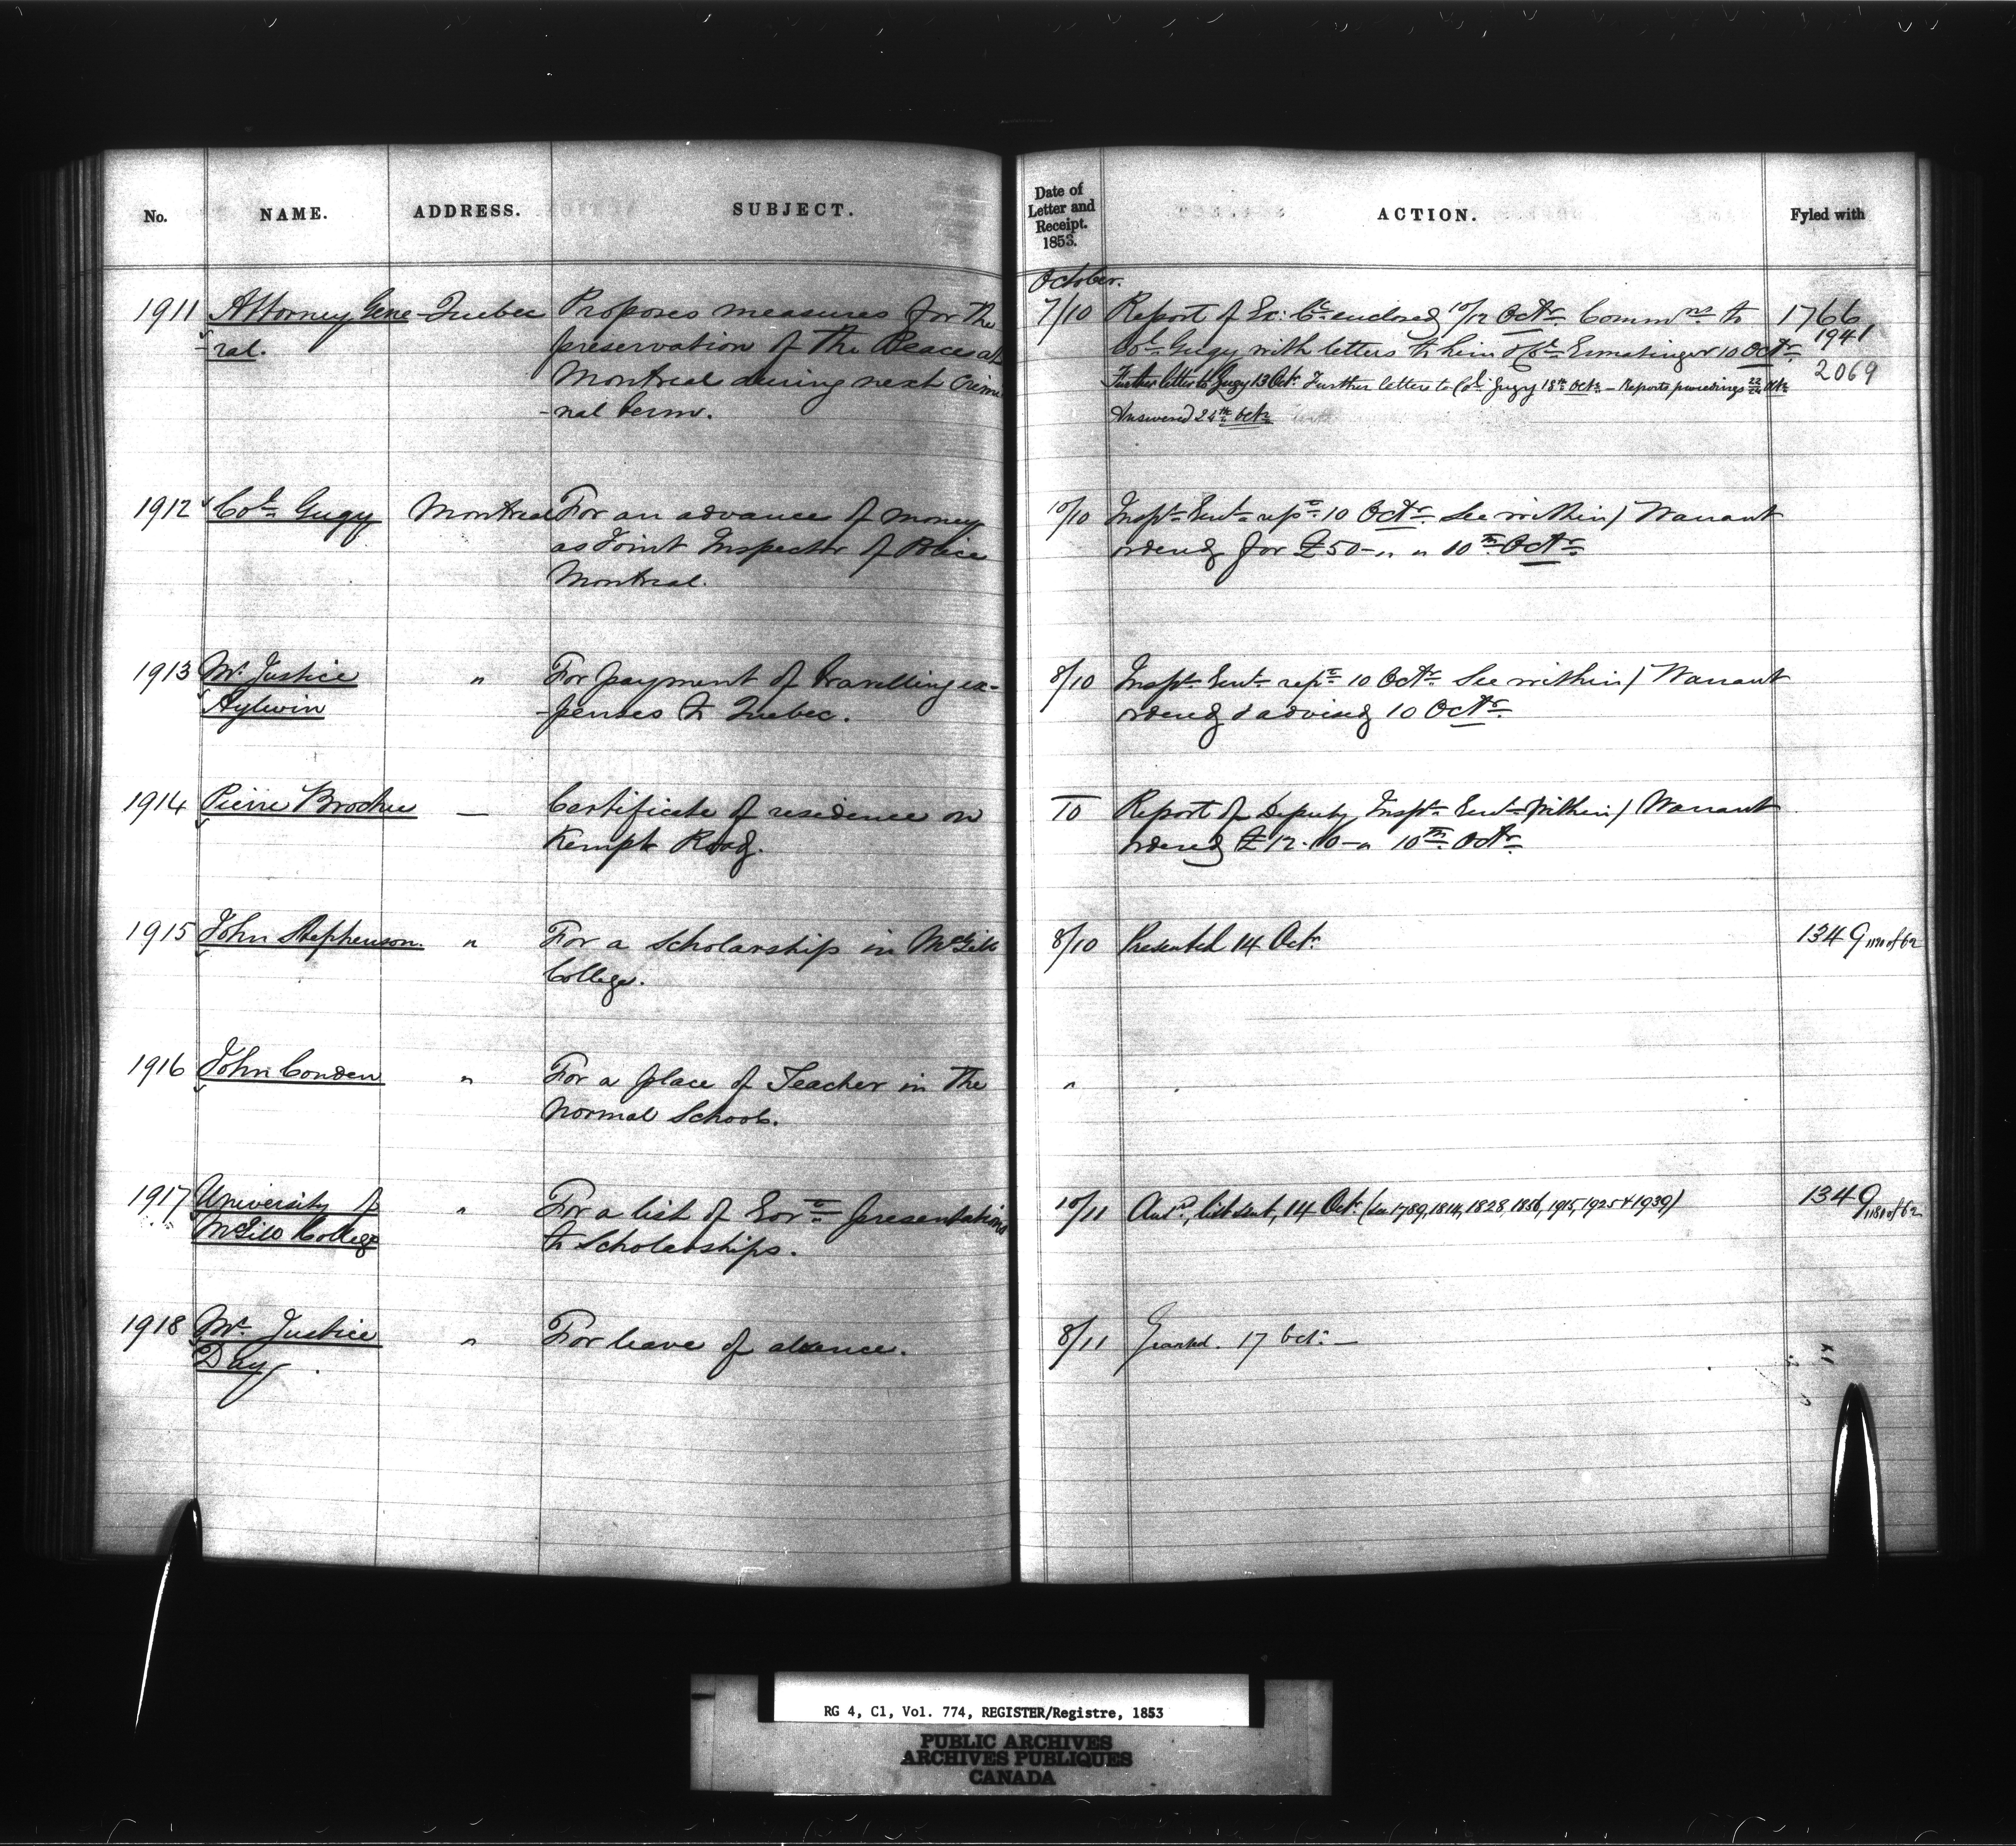 No. NAME. ADDRESS. SUBJECT.
Date of Letter and Receipt. 1853. ACTION. Fyled with
October.
1911 Attorney Gene- Quebec Proposes measures for the
-ral. preservation of the Peace at
Montreal during next Crimi
-nal term.
7/10 Report of Ex: Cl. enclosed 10/12 Octr. Commns to 1766
Col. Gugy with letters to him & Cl. Ermatinger 10 Octr. 1941
Further letter to Gugy 13 Octr. Further letter to Col. Gugy 18th Octr. - Reports proceedings 22/24 Octr. 2069
Answered 24th Octr.
1912 Col. Gugy Montreal For an advance of money
as Joint Inspector of Police
Montreal.
10/10 Inspr. Genl. repn. 10 Octr. See within/ Warrant
ordered for £50-"-" 10th Octr.
1913 Mr. Justice " For payment of travelling ex-
Aylwin -penses to Quebec.
8/10 Inspr. Genl. repn. 10 Octr. See within/ Warrant
ordered & advised 10 Octr.
1914 Pierre Brochu — Certificate of residence on
Kempt Road.
10 Report of Deputy Inspr. Genl. Within/ Warrant
ordered £12.10-" 10th Octr.
1915 John Stephenson. " For a Scholarship in McGill
College.
8/10 Presented 14 Oct. 1349 of 62
1916 John Conden " For a place of Teacher in the
Normal School.
"
1917 University of " For a list of Govt. presentations
McGill College to Scholarships.
10/11 Ansd., list sent, 14 Oct. (See 1789, 1814, 1828, 1856, 1915, 1925 & 1939) 1349 of 62
1918 Mr. Justice " For leave of absence.
Day.
8/11 Granted. 17 Oct. —
RG 4, C1, Vol. 774, REGISTER/Registre, 1853
PUBLIC ARCHIVES
ARCHIVES PUBLIQUES
CANADA